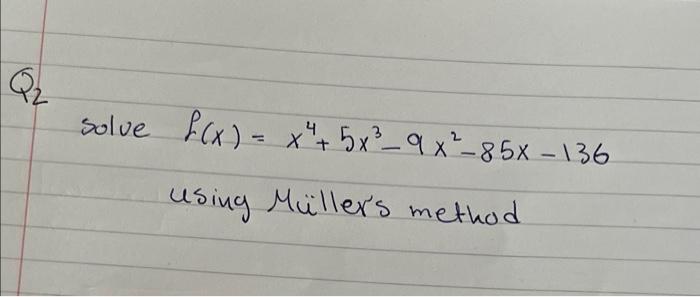 Q2
solve f(x) = x⁴+ 5x³- 9x²-85x -136
using Müller's method